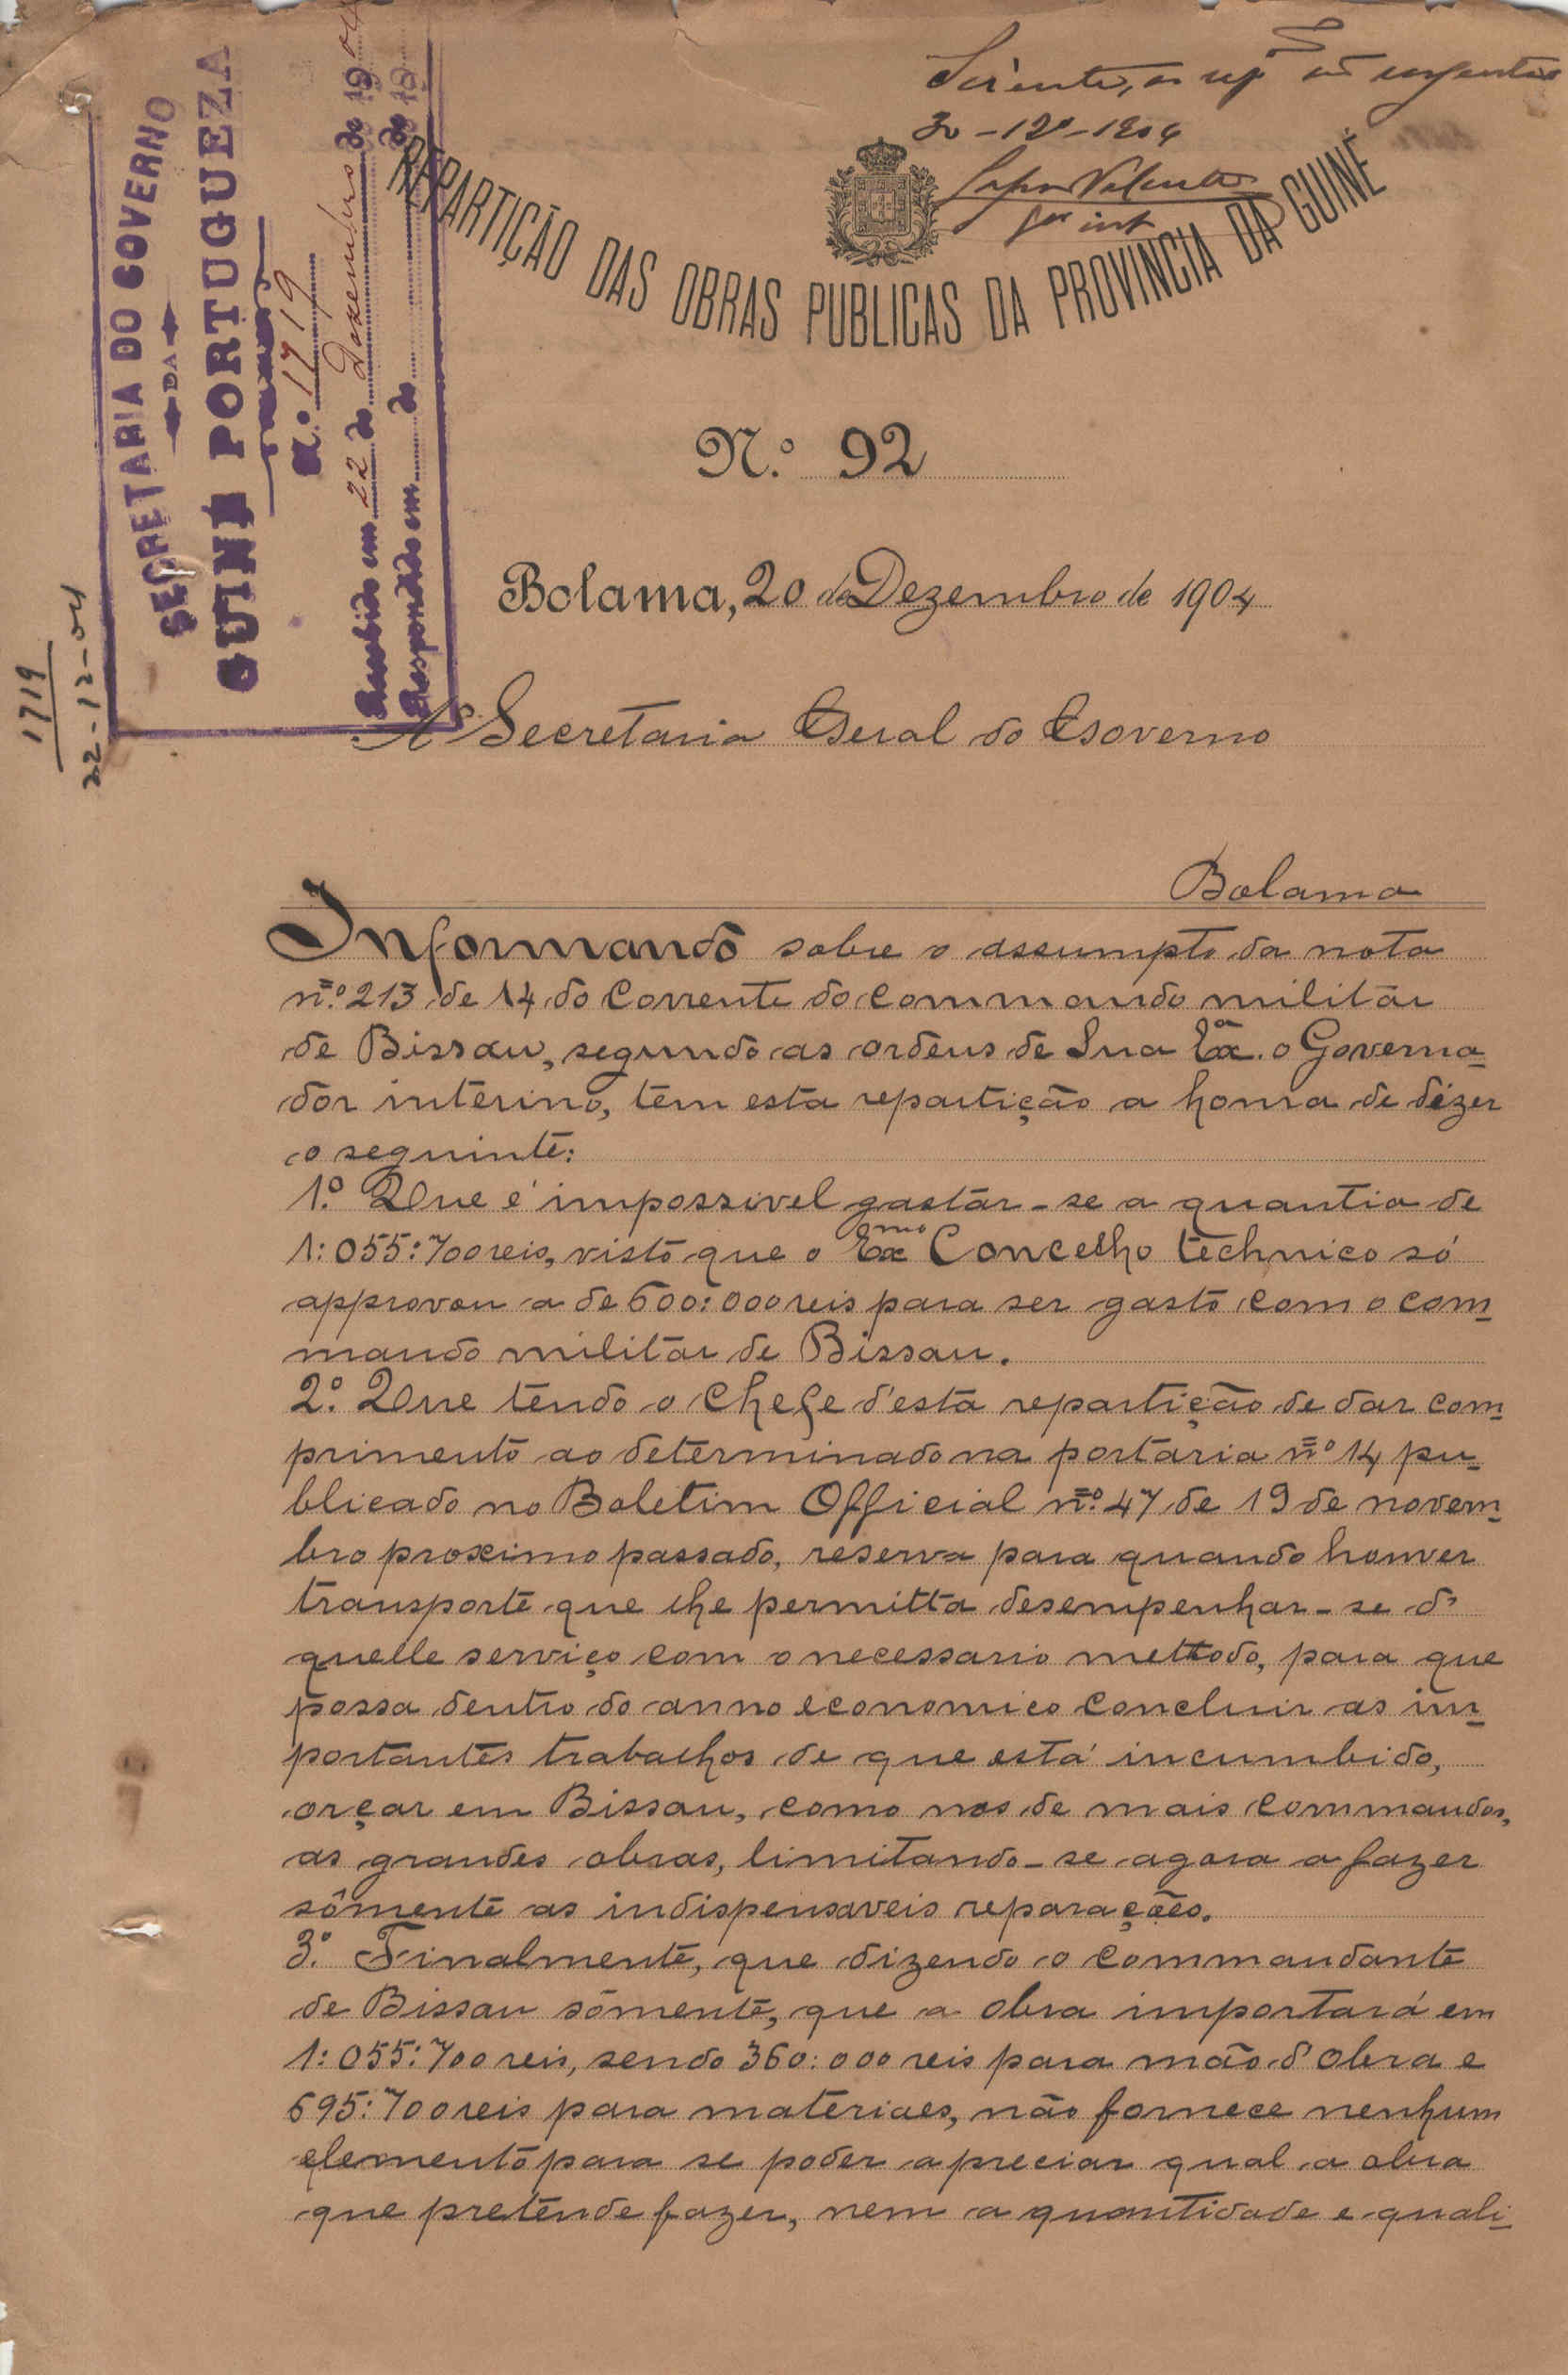 30-12º-1904
REPARTIÇÃO DAS OBRAS PUBLICAS DA PROVINCIA DA GUINÉ
SECRETARIA DO GOVERNO
DA
GUINÉ PORTUGUEZA
N.º 1719
Recebido em 22 de Dezembro de 1904
Respondido em de de 19
1719
22-12-04
N.º 92
Bolama, 20 de Dezembro de 1904
Á Secretaria Geral do Governo
Bolama
Informando sobre o assumpto da nota
nº. 213 de 14 do corrente do commando militar
de Bissau, segundo as ordens de Sua Exª. o Governa-
dor interino, tem esta repartição a honra de dizer
o seguinte:
1.º Que é impossivel gastar-se a quantia de
1:055:700 reis, visto que o Exmo Concelho technico só
approvou a de 600:000 reis para ser gasto com o com-
mando militar de Bissau.
2.º Que tendo o chefe d'esta repartição de dar com-
primento ao determinado na portaria nº 14 pu-
blicado no Boletim Official nº. 47 de 19 de novem-
bro proximo passado, reserva para quando houver
transporte que lhe permitta desempenhar-se d'
quelle serviço com o necessario methodo, para que
possa dentro do anno economico concluir as im-
portantes trabalhos de que está incumbido,
orçar em Bissau, como nos de mais commandos,
as grandes obras, limitando-se agora a fazer
sômente as indispensaveis reparações.
3.º Finalmente, que dizendo o commandante
de Bissau sômente, que a obra importará em
1:055:700 reis, sendo 360:000 reis para mão d'obra e
695:700 reis para materiaes, não fornece nenhum
elemento para se poder apreciar qual a obra
que pretende fazer, nem a quantidade e quali-